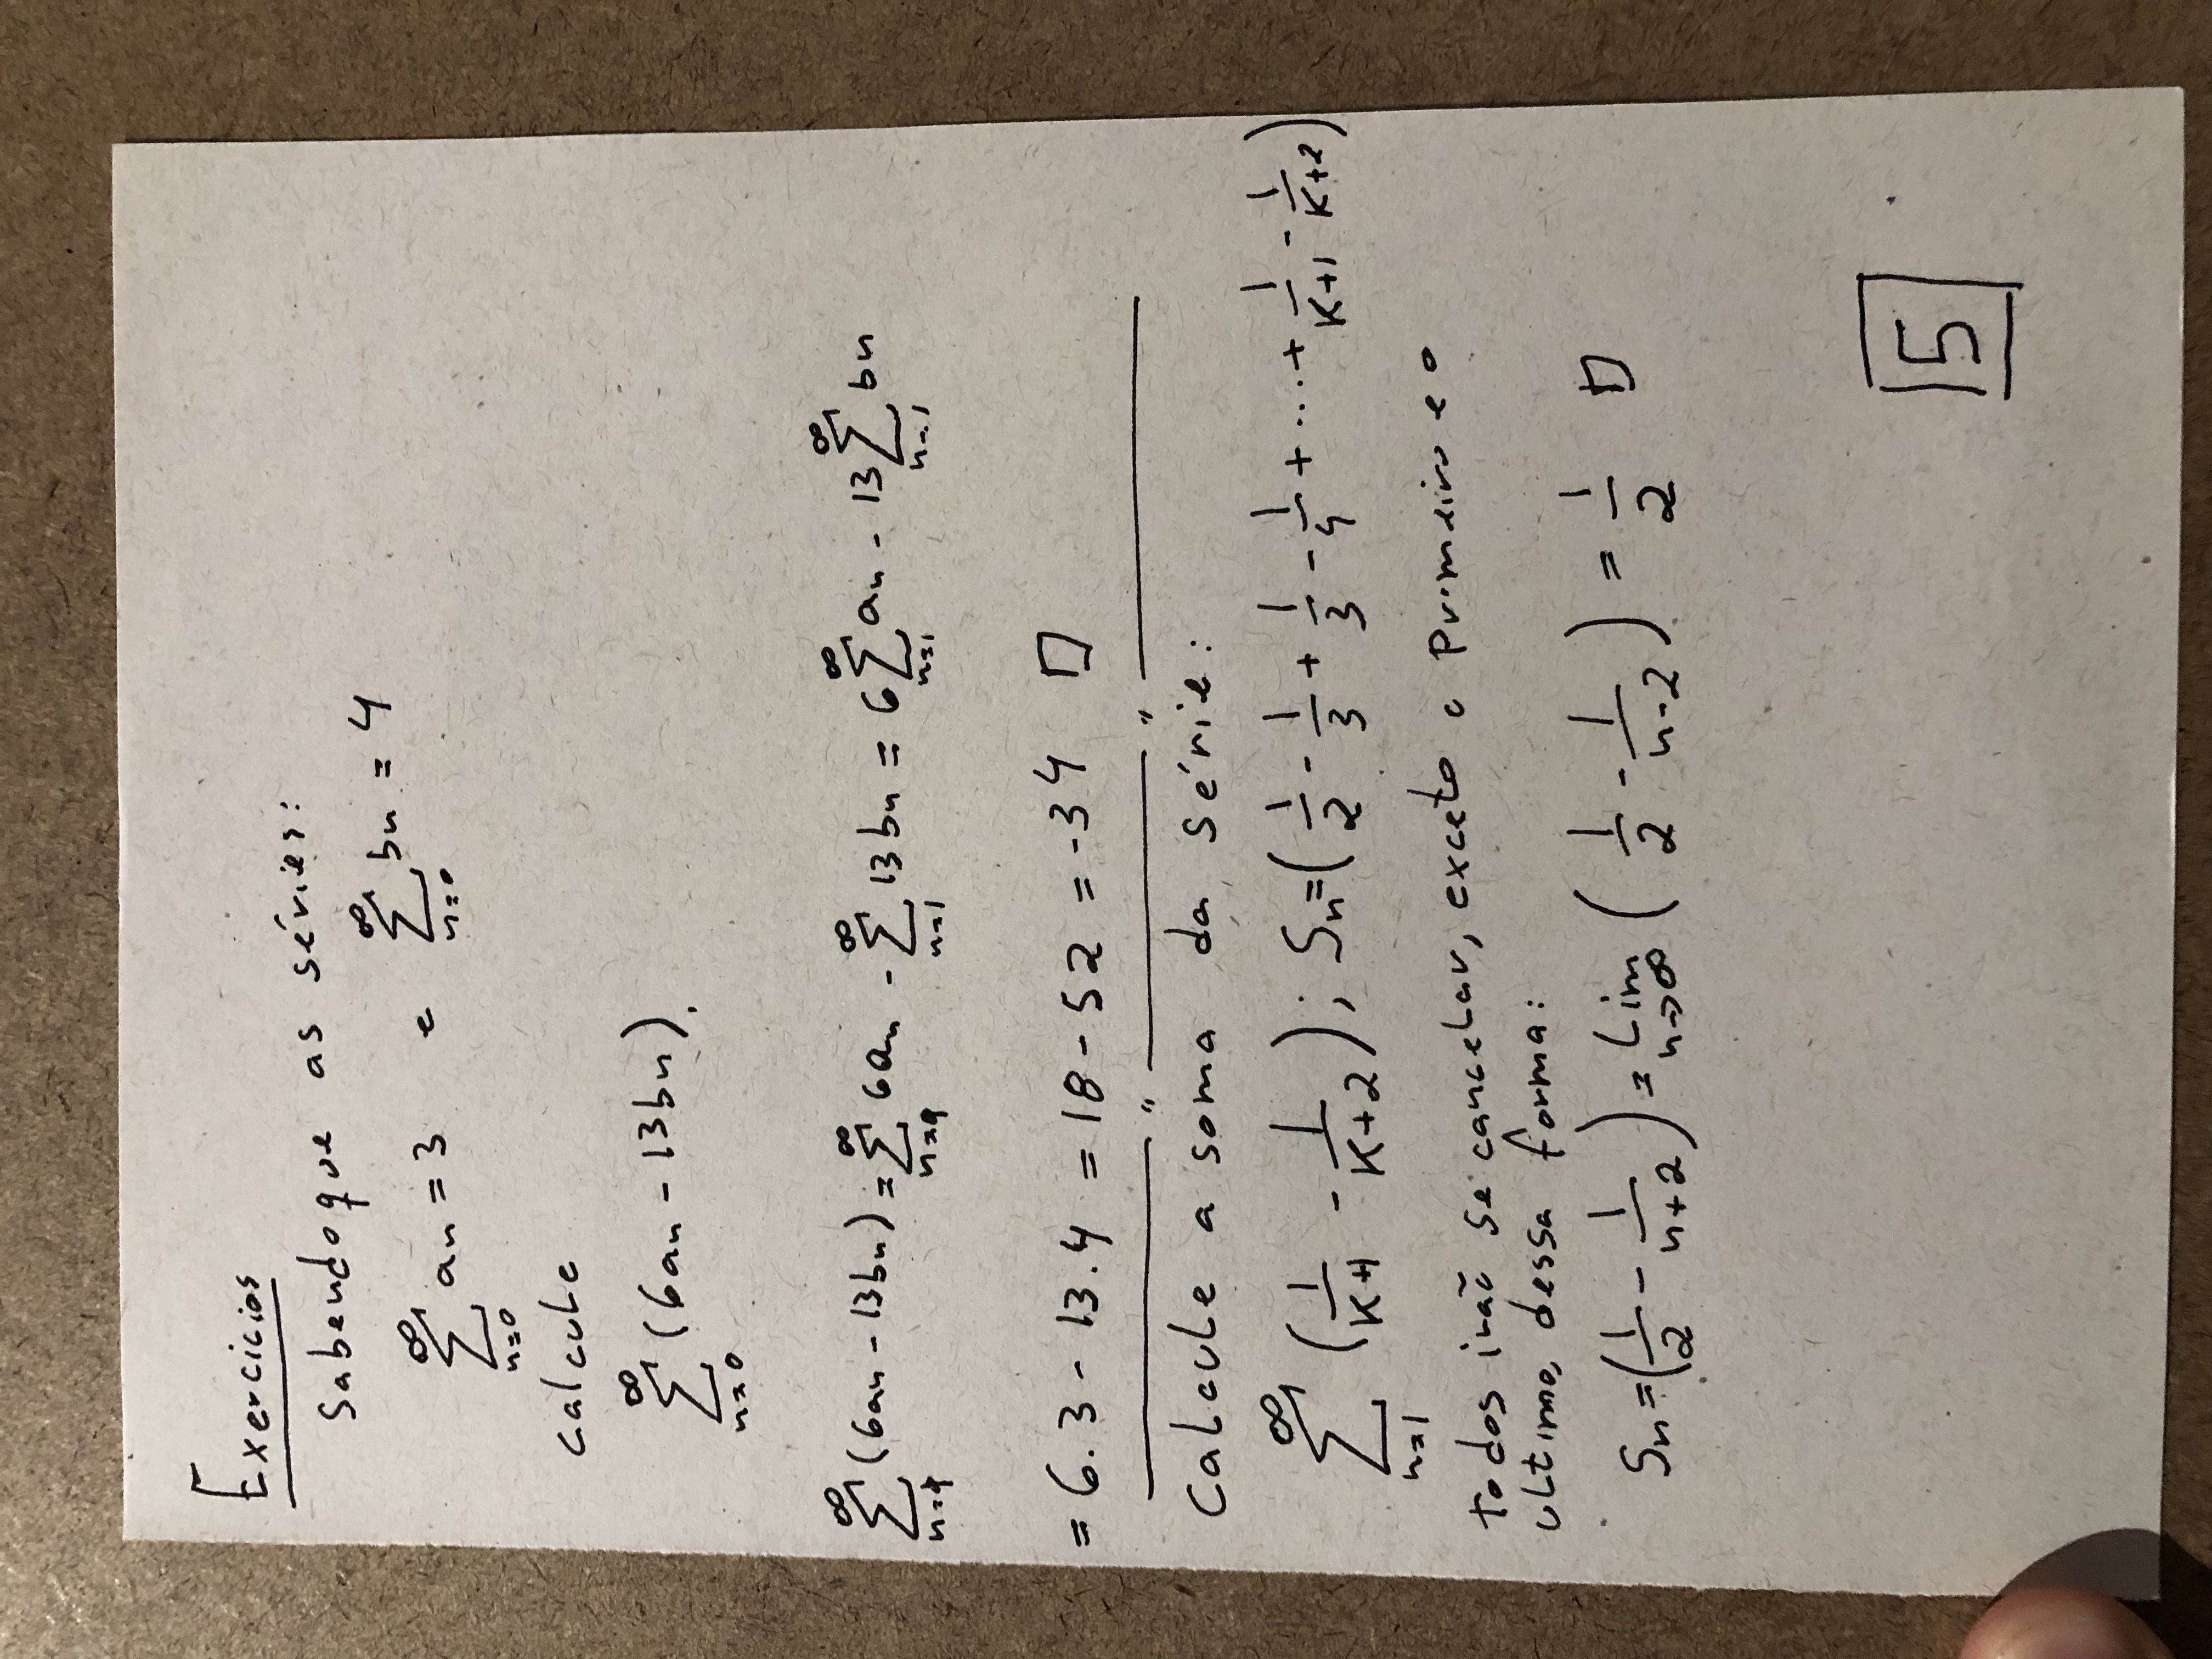 Exercicios
Sabendo que as séries:
∞ ∑ n=0 an = 3 e ∞ ∑ n=0 bn = 4
calcule
∞ ∑ n=0 (6an - 13bn).
∞ ∑ (6an - 13bn) = ∞ ∑ 6an - ∞ ∑ n=1 13bn = 6 ∞ ∑ n=1 an - 13 ∞ ∑ n=1 bn
= 6.3 - 13.4 = 18 - 52 = -34 □
———— " ———— " ————
Calcule a soma da série:
∞ ∑ n=1 (1/K+1 - 1/K+2); Sn = (1/2 - 1/3 + 1/3 - 1/4 + ... + 1/K+1 - 1/K+2)
todos irão se cancelar, exceto o primeiro e o
ultimo, dessa forma:
Sn = (1/2 - 1/n+2) = Lim n→∞ (1/2 - 1/n-2) = 1/2 □
5